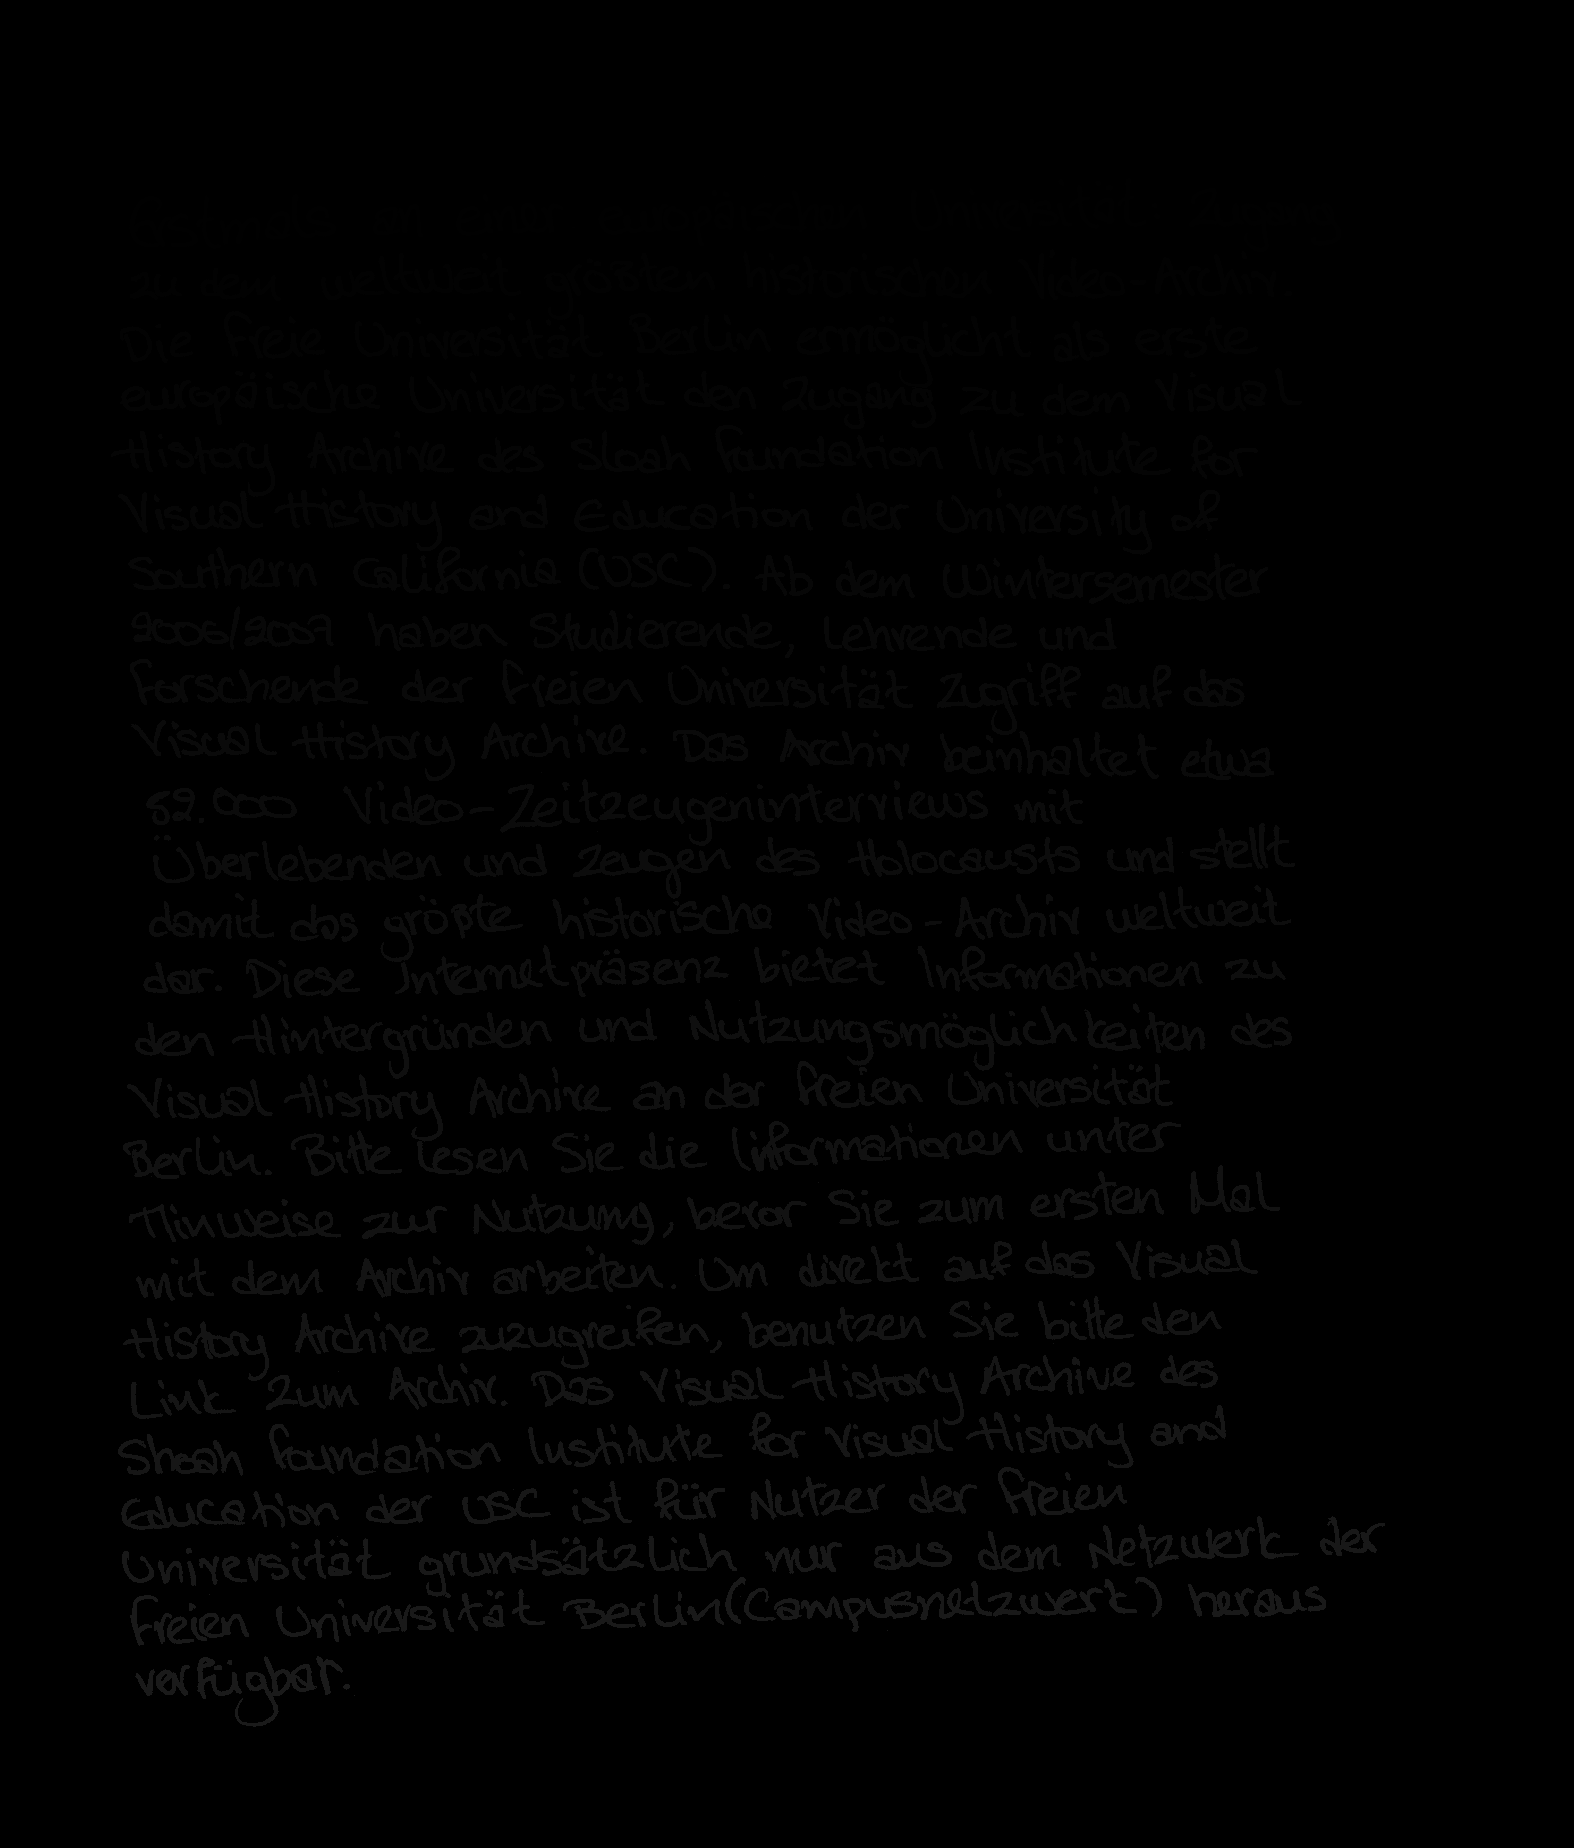 Erstmals an einer europäischen Universität: Zugang
zu dem weltweit größten historischen Video-Archiv.
Die Freie Universität Berlin ermöglicht als erste
europäische Universität den Zugang zu dem Visual
History Archive des Sloah Foundation Institute for
Visual History and Education der University of
Southern California (USC). Ab dem Wintersemester
2006/2007 haben Studierende, Lehrende und
Forschende der Freien Universität Zugriff auf das
Visual History Archive. Das Archiv beinhaltet etwa
52.000 Video-Zeitzeugeninterviews mit
Überlebenden und Zeugen des Holocausts und stellt
damit das größte historische Video-Archiv weltweit
dar. Diese Internetpräsenz bietet Informationen zu
den Hintergründen und Nutzungsmöglichkeiten des
Visual History Archive an der Freien Universität
Berlin. Bitte lesen Sie die Informationen unter
Hinweise zur Nutzung, bevor Sie zum ersten Mal
mit dem Archiv arbeiten. Um direkt auf das Visual
History Archive zuzugreifen, benutzen Sie bitte den
Link zum Archiv. Das Visual History Archive des
Shoah Foundation Institute for Visual History and
Education der USC ist für Nutzer der Freien
Universität grundsätzlich nur aus dem Netzwerk der
Freien Universität Berlin (Campusnetzwerk) heraus
verfügbar.